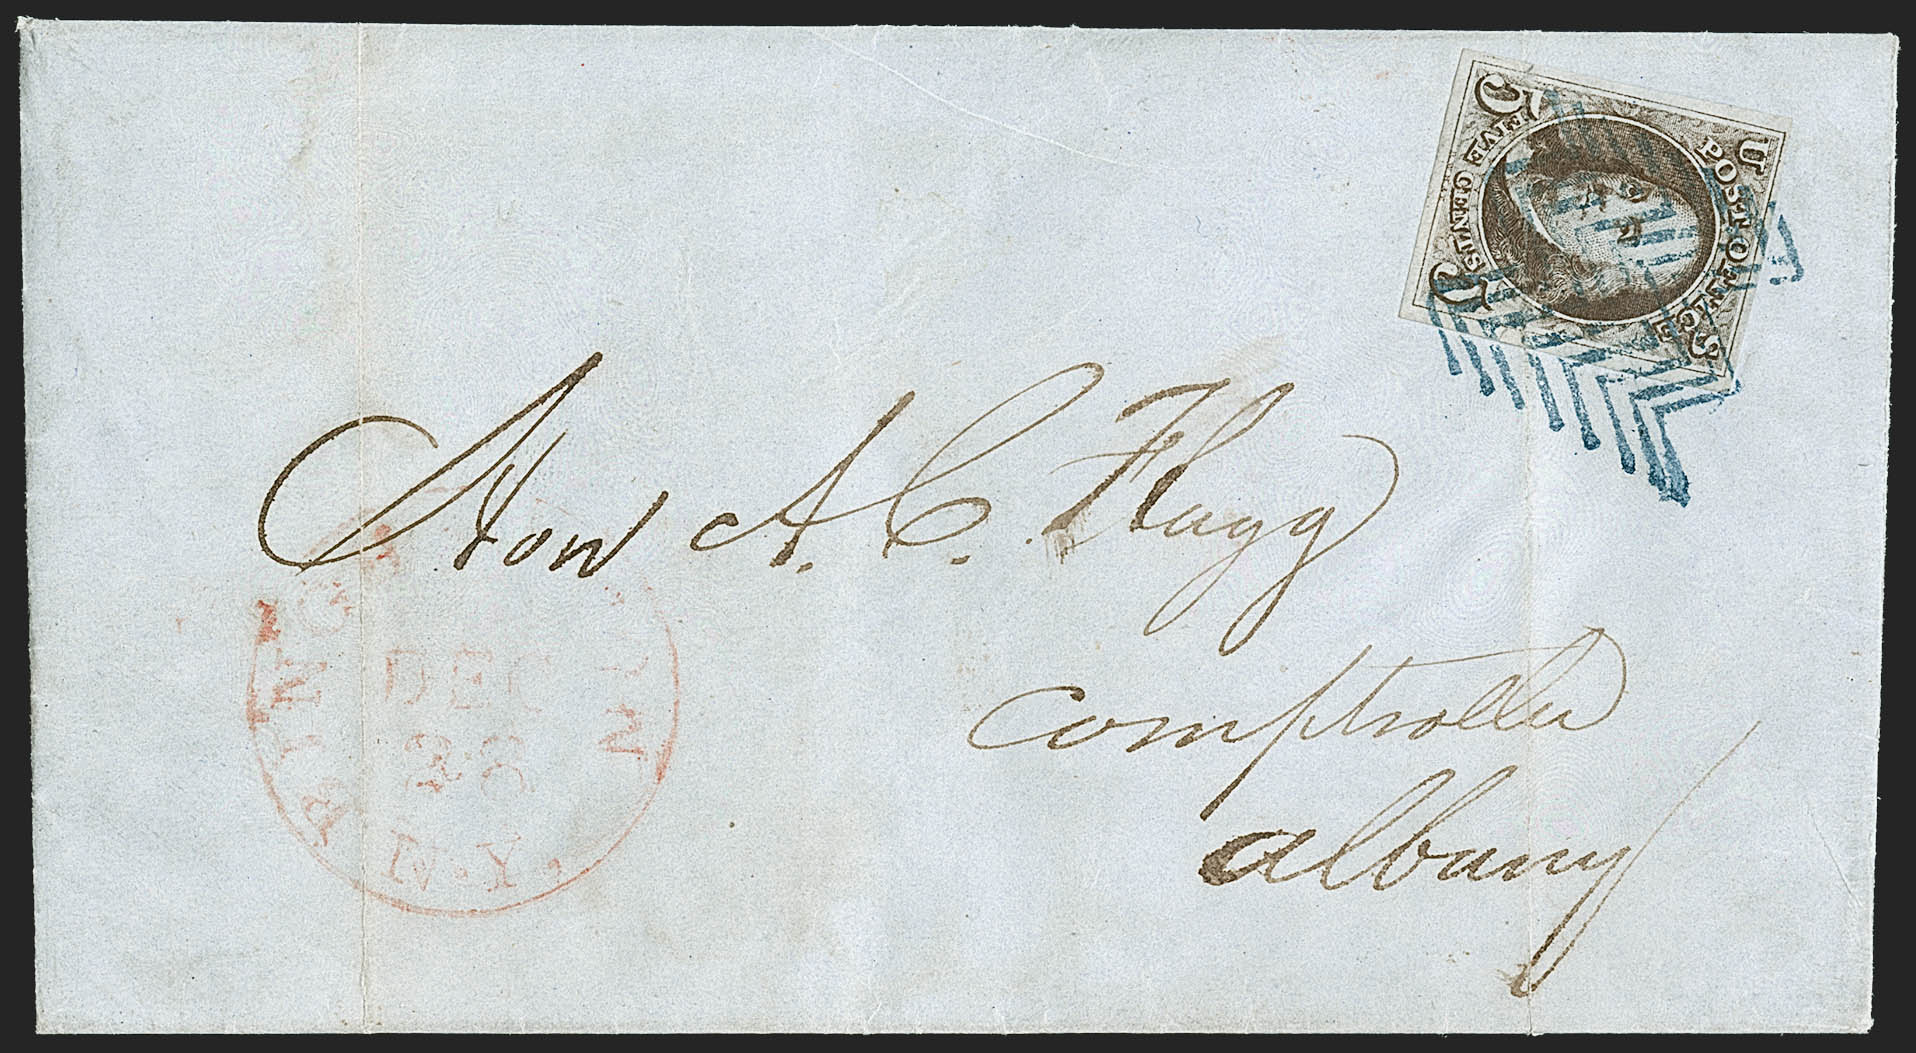 5 5
U S
POST OFFICE
FIVE CENTS
Hon A. C. Flagg
Comptroller
Albany
DEC
N.Y.